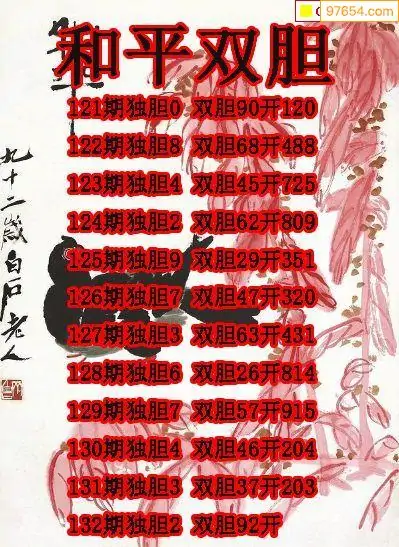 97654.com
和平双胆
121期独胆0 双胆90开120
122期独胆8 双胆68开488
123期独胆4 双胆45开725
124期独胆2 双胆62开809
125期独胆9 双胆29开351
126期独胆7 双胆47开320
127期独胆3 双胆63开431
128期独胆6 双胆26开814
129期独胆7 双胆57开915
130期独胆4 双胆46开204
131期独胆3 双胆37开203
132期独胆2 双胆92开
九十二岁白石老人